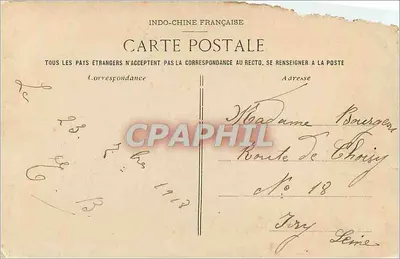 INDO-CHINE FRANÇAISE
CARTE POSTALE
TOUS LES PAYS ÉTRANGERS N'ACCEPTENT PAS LA CORRESPONDANCE AU RECTO, SE RENSEIGNER A LA POSTE
Correspondance
Adresse
Le
23
1913
B
Madame Bourgeois
Route de Choisy
No 18
Ivry
Seine
CPAPHIL